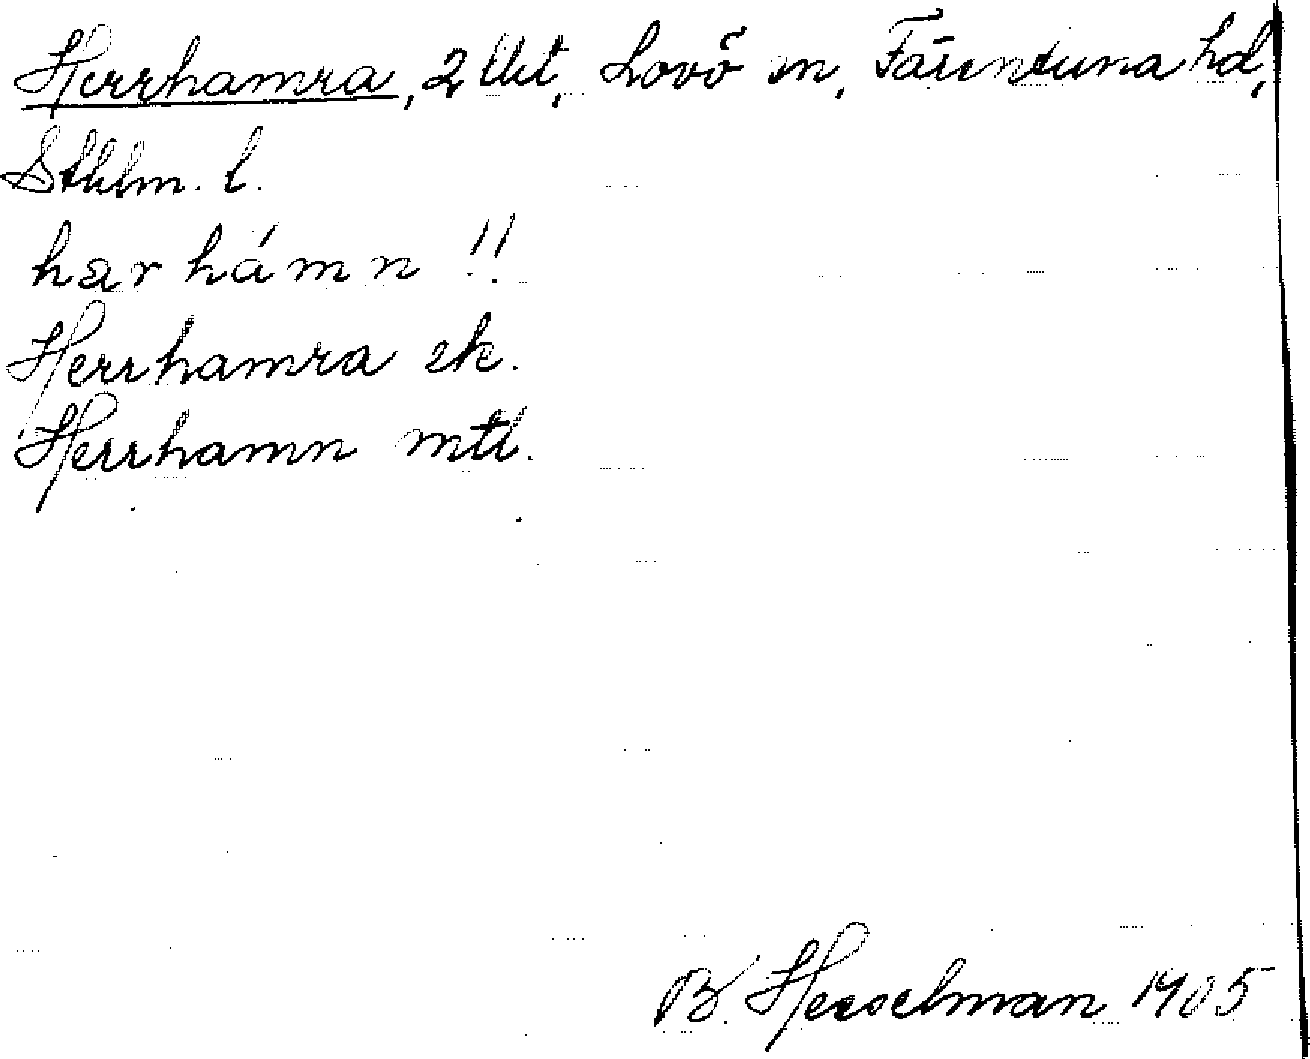 Herrhamra, 2 Utt, Lovö sn, Färentuna hd,
Sthlm. l.
har hámn !!
Herrhamra ek.
Herrhamn mtl.
B. Hesselman 1905